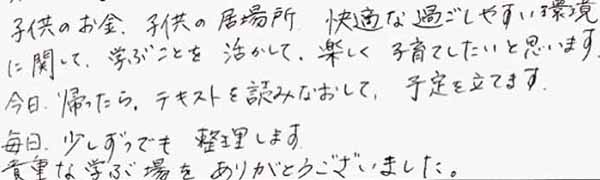 子供のお金、子供の居場所、快適な過ごしやすい環境
に関して、学ぶことを活かして、楽しく子育てしたいと思います。
今日、帰ったら、テキストを読みなおして、予定を立てます。
毎日、少しずつでも整理します
貴重な学ぶ場をありがとうございました。